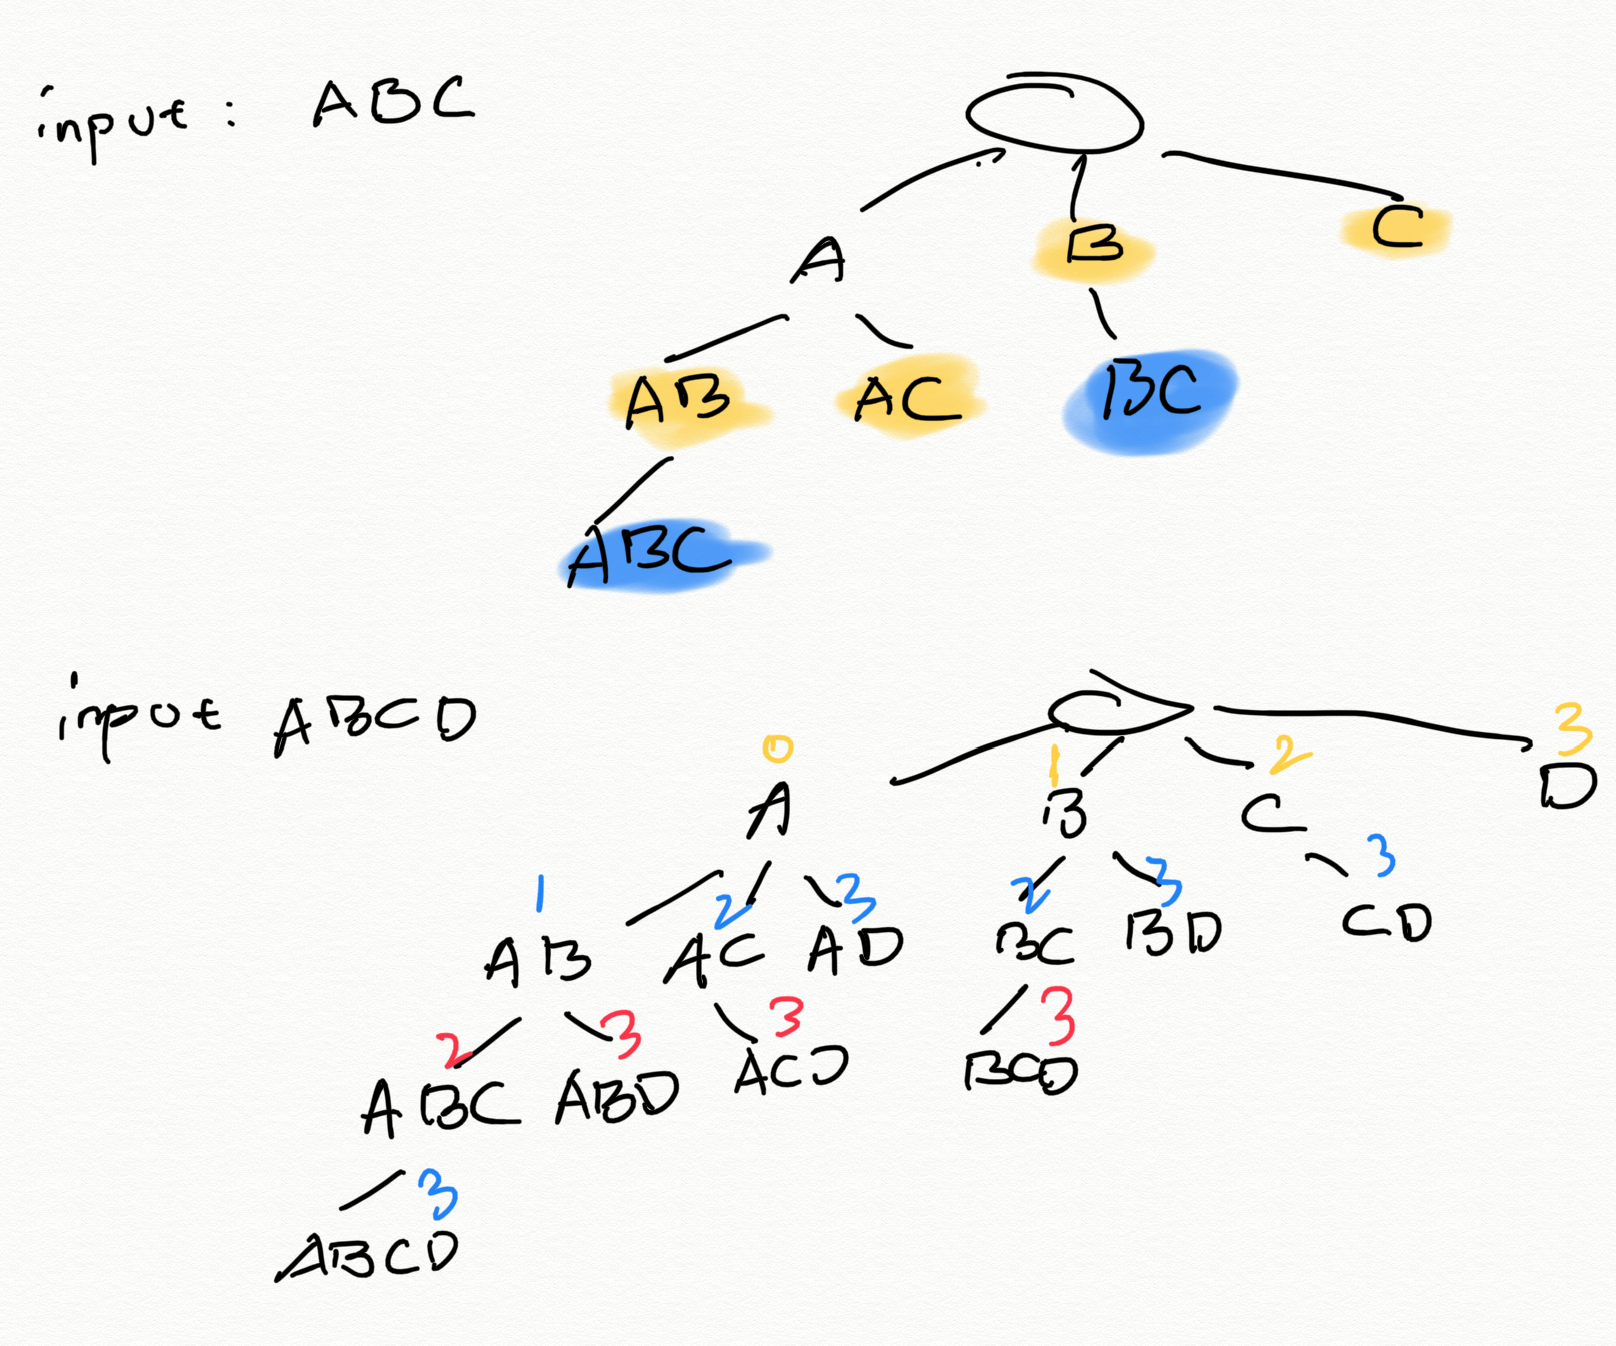 input: ABC
A B C
AB AC BC
ABC
input ABCD
0 1 2 3
A B C D
1 2 3 2 3 3
AB AC AD BC BD CD
2 3 3 3
ABC ABD ACD BCD
3
ABCD